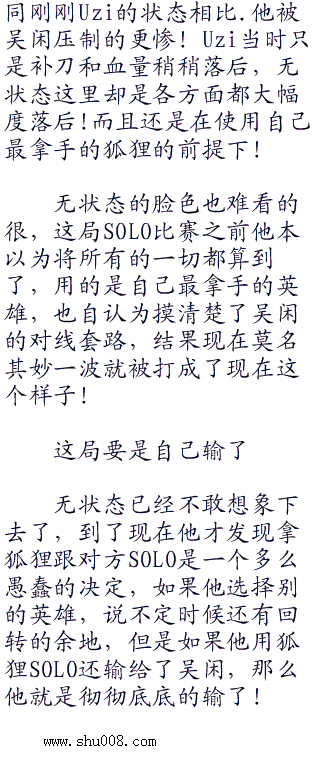 同刚刚Uzi的状态相比.他被
吴闲压制的更惨! Uzi当时只
是补刀和血量稍稍落后，无
状态这里却是各方面都大幅
度落后!而且还是在使用自己
最拿手的狐狸的前提下!
无状态的脸色也难看的
很，这局SOLO比赛之前他本
以为将所有的一切都算到
了，用的是自己最拿手的英
雄，也自认为摸清楚了吴闲
的对线套路，结果现在莫名
其妙一波就被打成了现在这
个样子!
这局要是自己输了
无状态已经不敢想象下
去了，到了现在他才发现拿
狐狸跟对方SOLO是一个多么
愚蠢的决定，如果他选择别
的英雄，说不定时候还有回
转的余地，但是如果他用狐
狸SOLO还输给了吴闲，那么
他就是彻彻底底的输了!
www.shu008.com